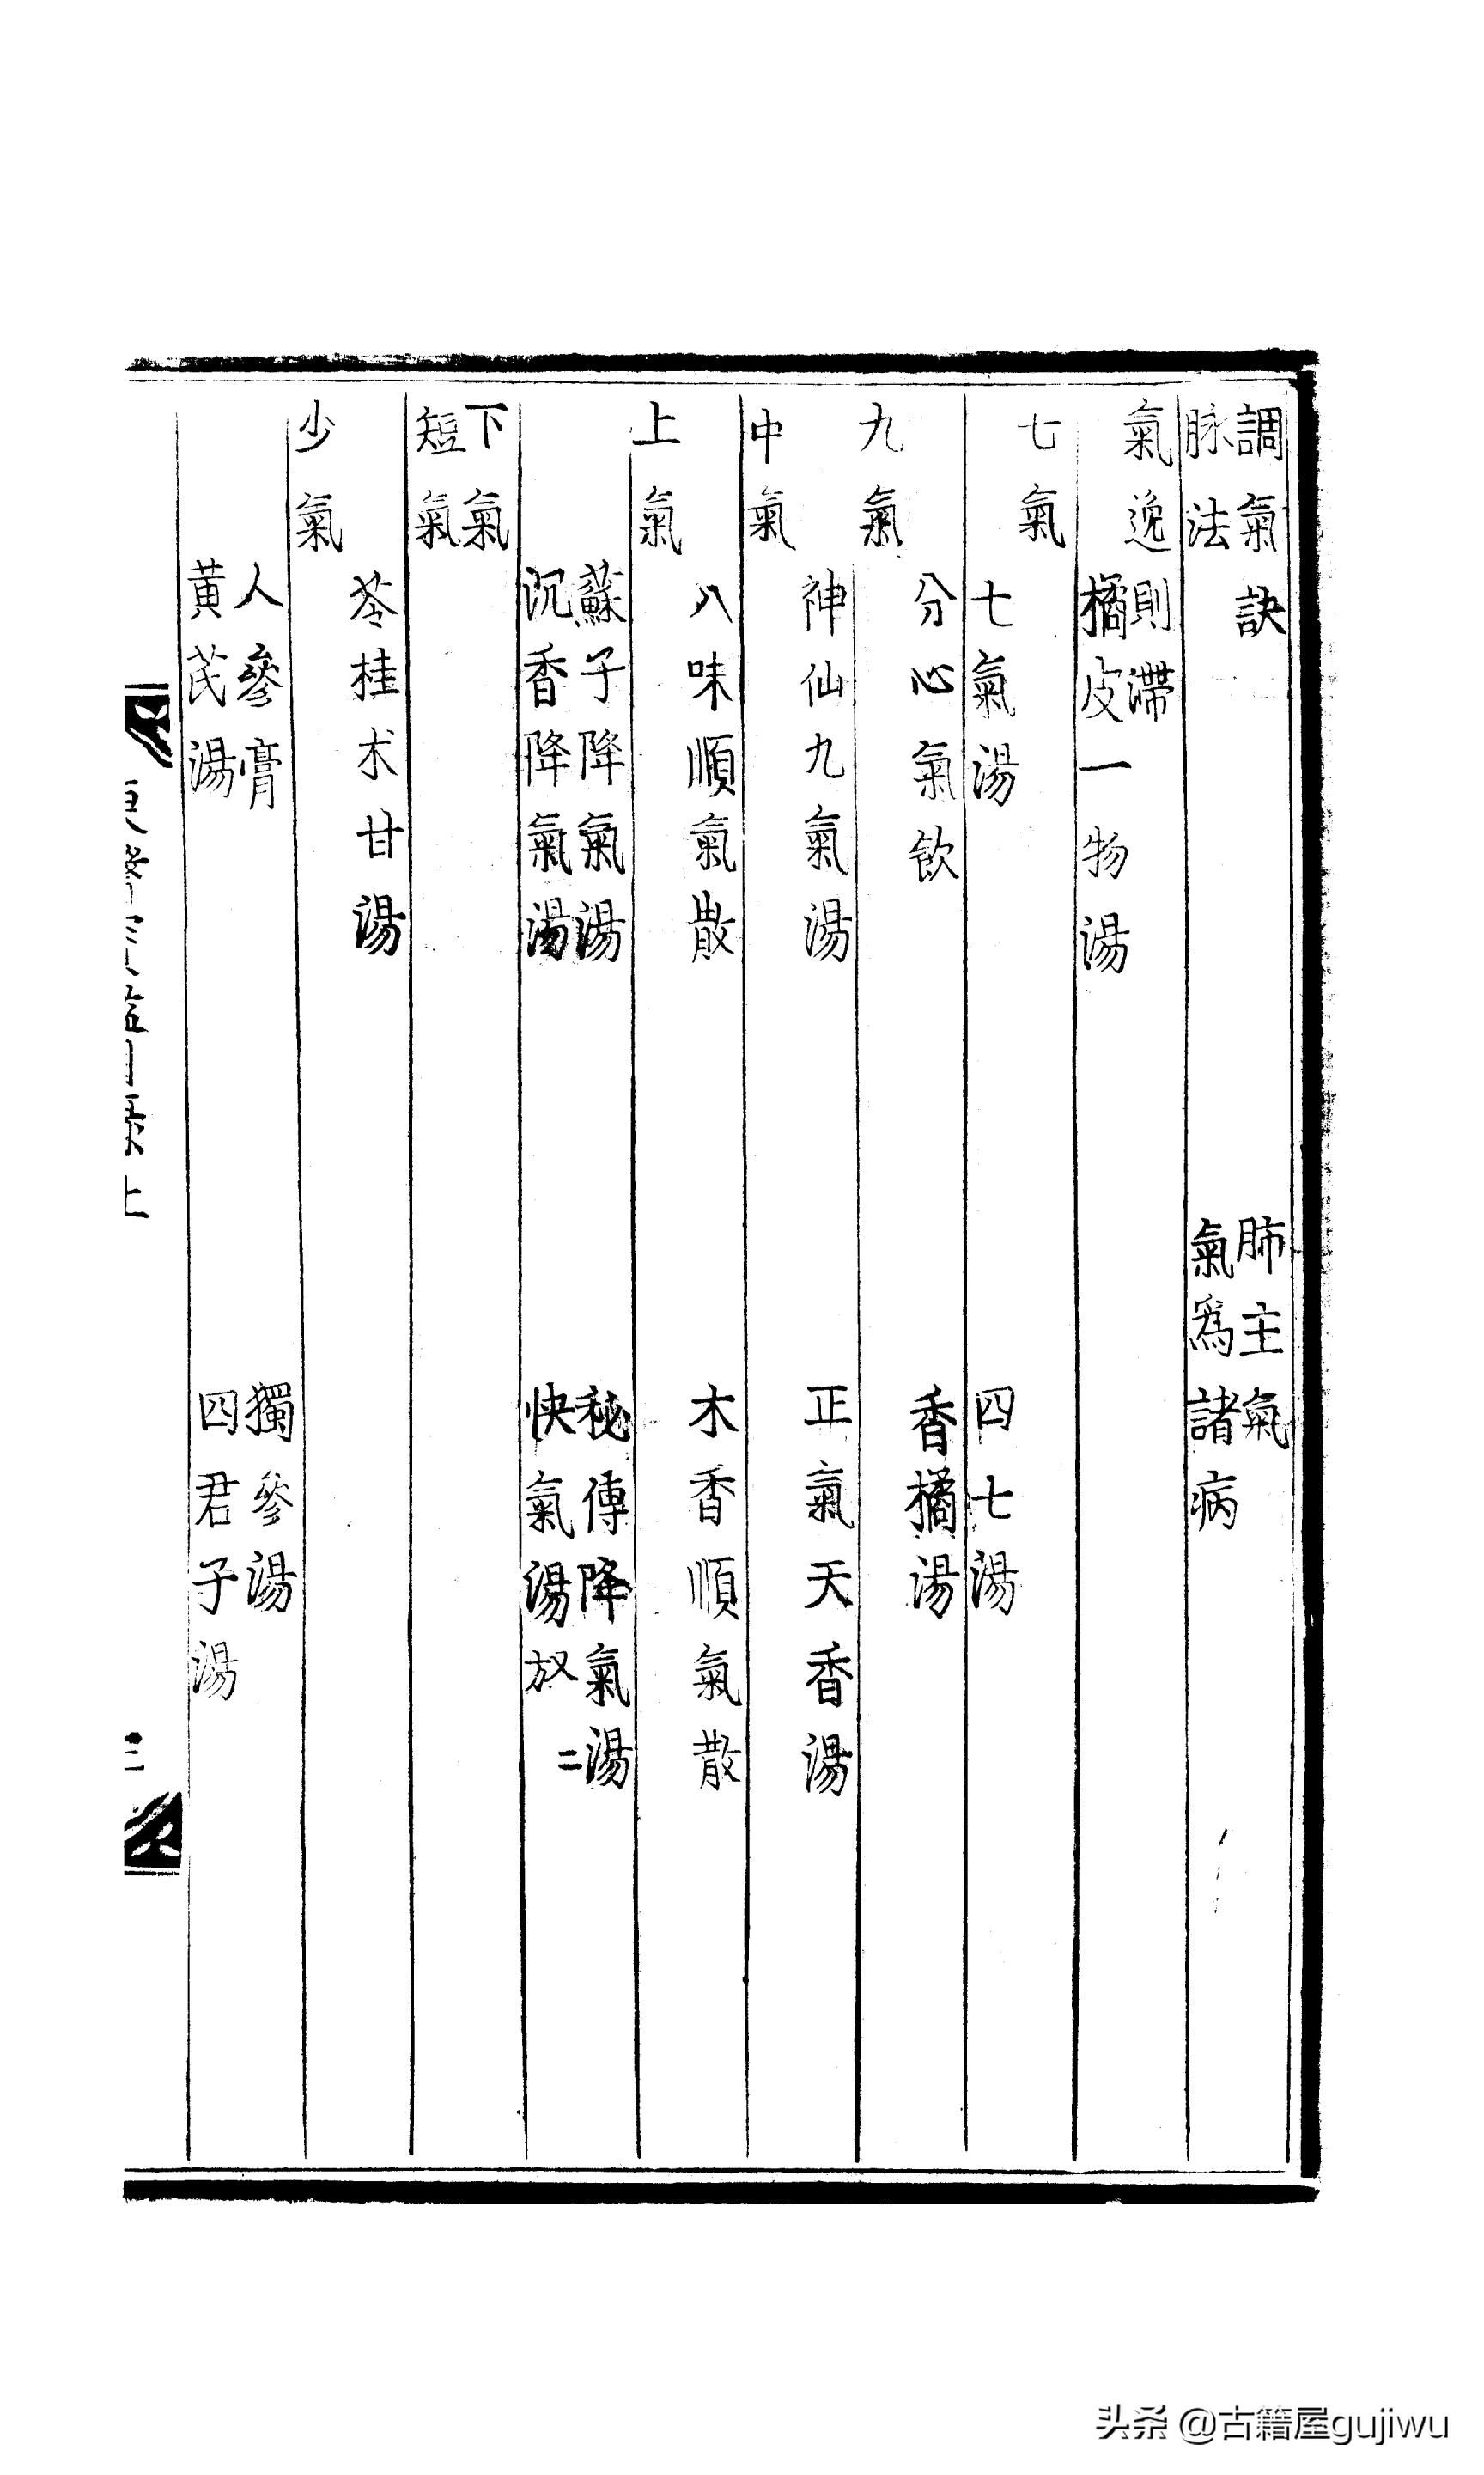 調氣訣 肺主氣
脉法 氣爲諸病
氣逸則滯
橘皮一物湯
七氣
七氣湯 四七湯
分心氣飲 香橘湯
九氣
神仙九氣湯 正氣天香湯
中氣
八味順氣散 木香順氣散
上氣
蘇子降氣湯 秘傳降氣湯
沉香降氣湯 快氣湯放二
下氣
短氣
苓桂朮甘湯
少氣
人參膏 獨參湯
黄芪湯 四君子湯
頭条 @古籍屋gujiwu